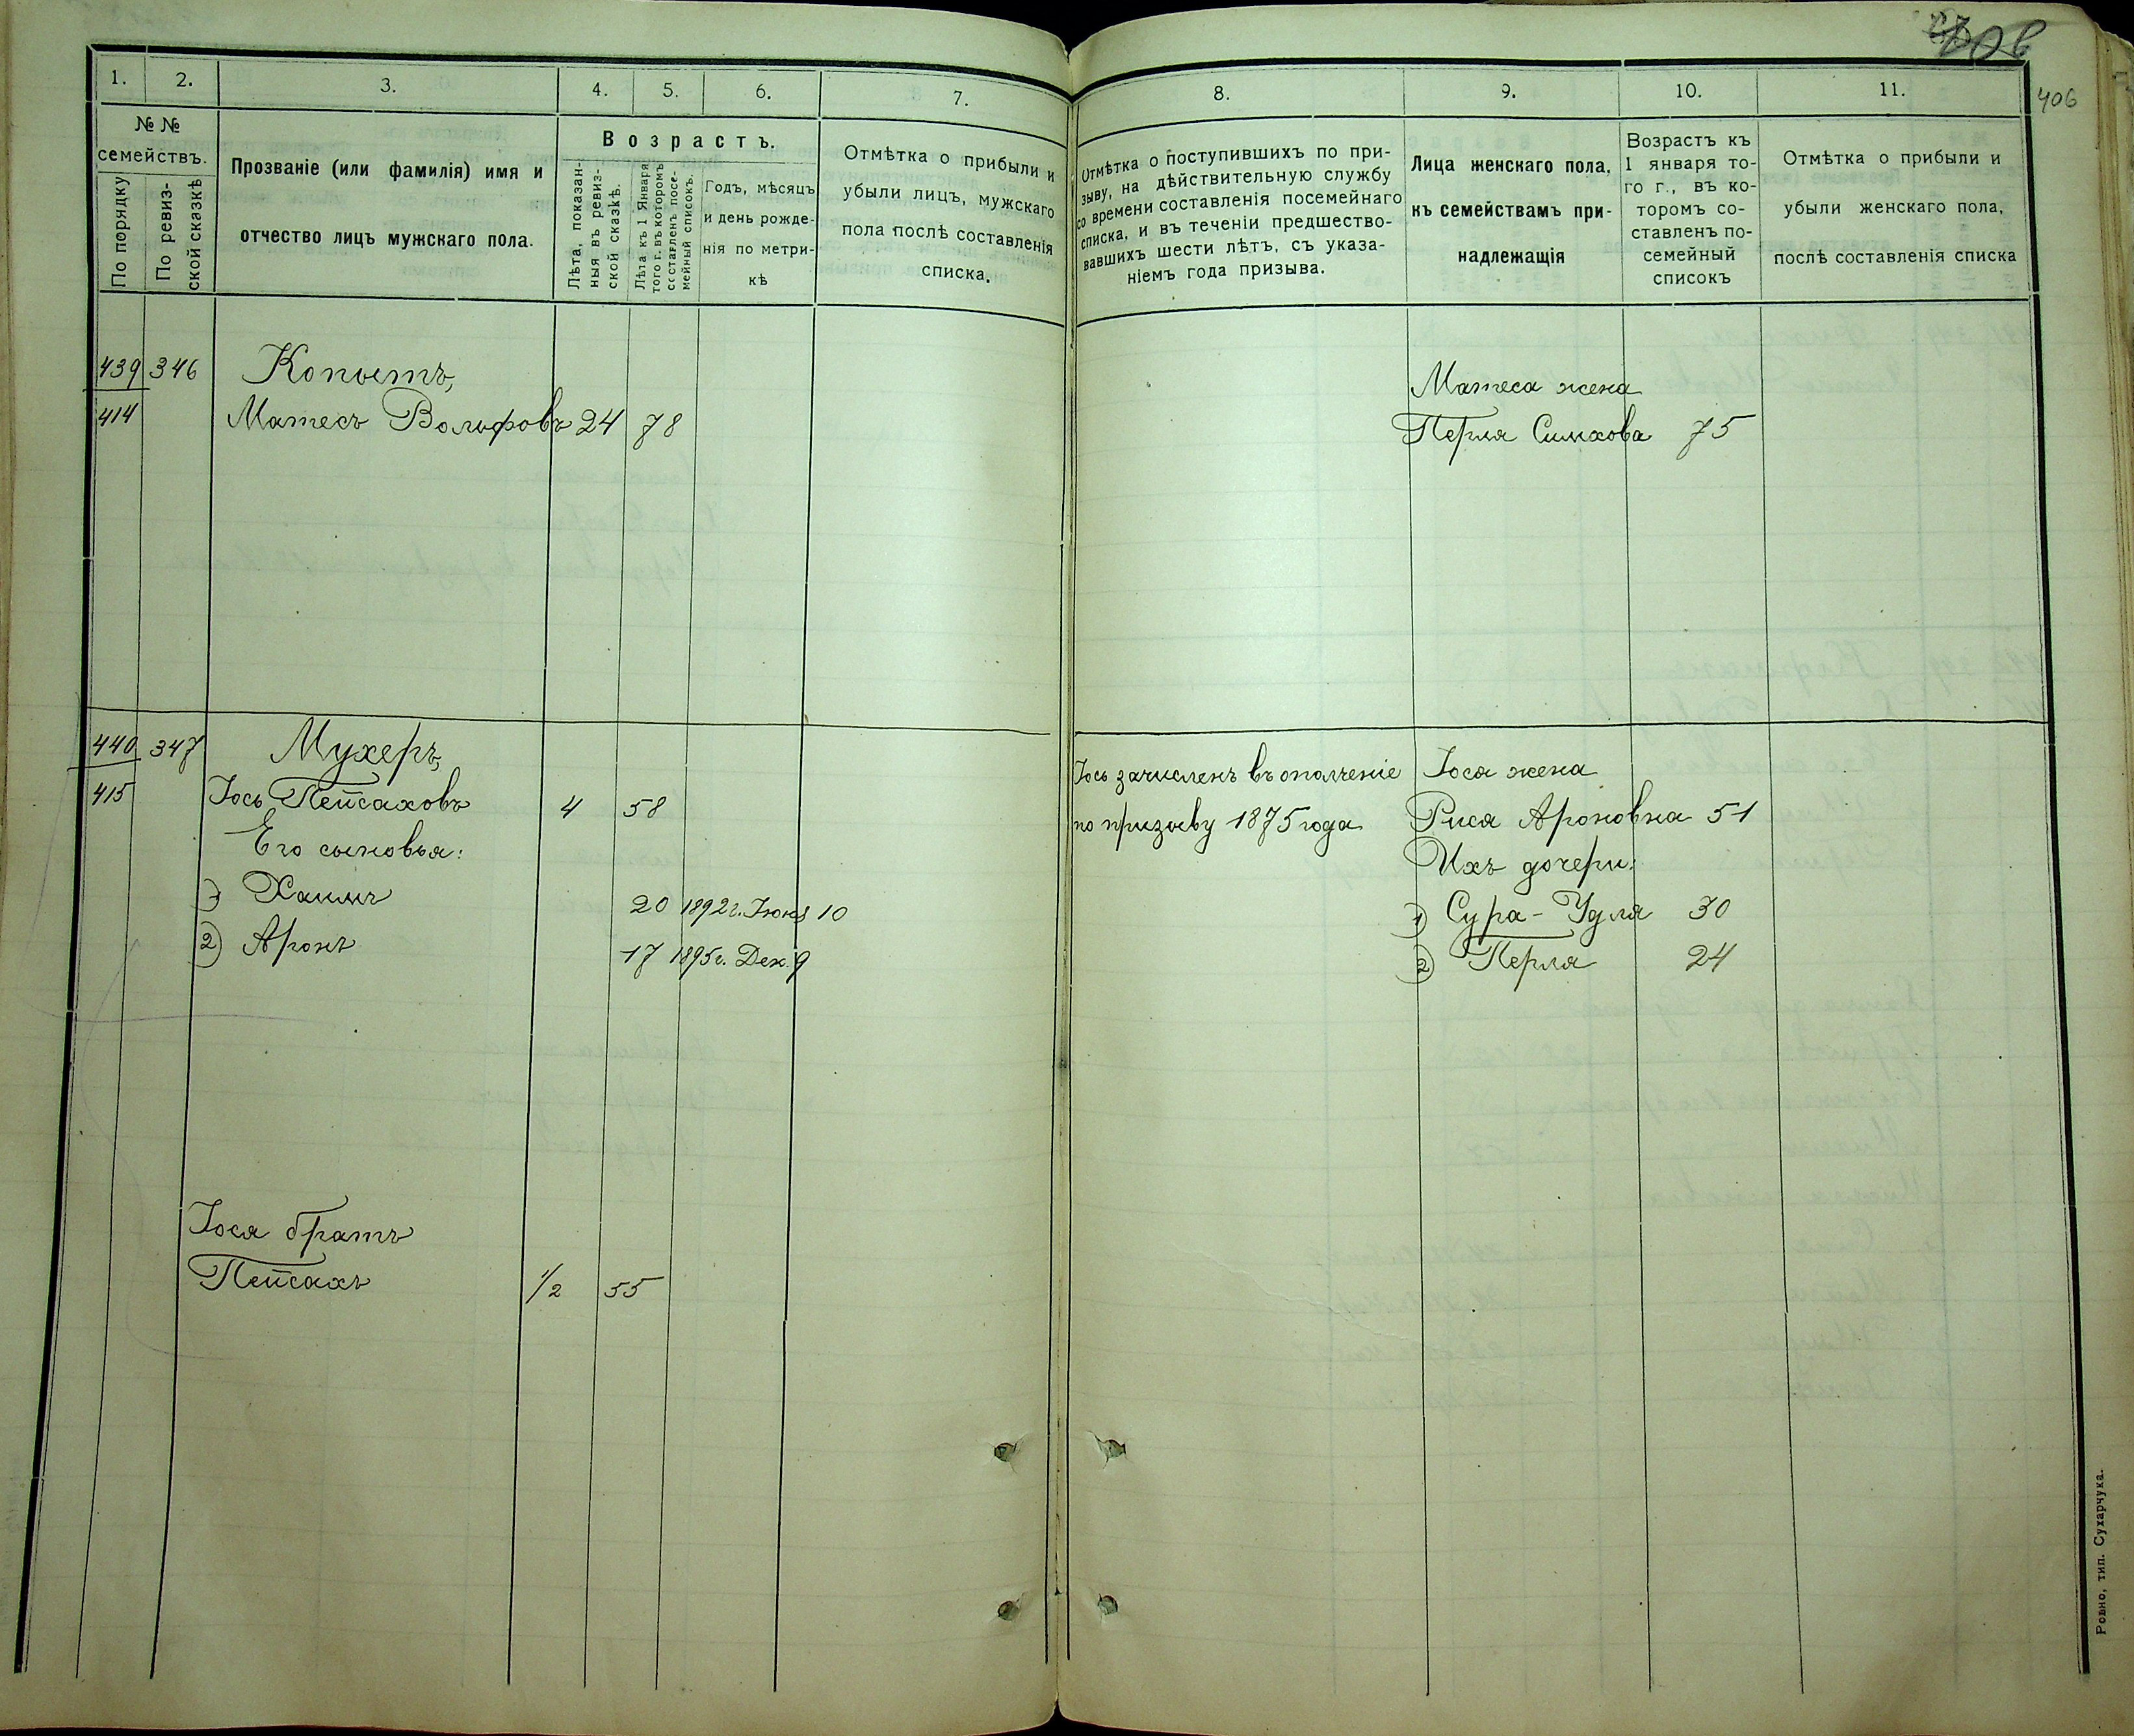 406
1. 2. 3. 4. 5. 6. 7. 8. 9. 10. 11.
№ №
семействъ.
По порядку
По ревиз-
ской сказкѣ
Прозваніе (или фамилія) имя и
отчество лицъ мужскаго пола.
Возрастъ.
Лѣта, показан-
ныя въ ревиз-
ской сказкѣ.
Лѣта къ 1 Января
того г. въ которомъ
составленъ посе-
мейный списокъ.
Годъ, мѣсяцъ
и день рожде-
нія по метри-
кѣ
Отмѣтка о прибыли и
убыли лицъ, мужскаго
пола послѣ составленія
списка.
Отмѣтка о поступившихъ по при-
зыву, на дѣйствительную службу
со времени составленія посемейнаго
списка, и въ теченіи предшество-
вавшихъ шести лѣтъ, съ указа-
ніемъ года призыва.
Лица женскаго пола,
къ семействамъ при-
надлежащія
Возрастъ къ
1 января то-
го г., въ ко-
торомъ со-
ставленъ по-
семейный
списокъ
Отмѣтка о прибыли и
убыли женскаго пола,
послѣ составленія списка
439 346 Копытъ,
414 Матесъ Вольфовъ 24 78
Матеса жена
Перля Симхова 75
440 347 Мухеръ,
415 Іось Пейсаховъ 4 58
Его сыновья:
1) Хаимъ 20 1892 г. Іюня 10
2) Аронъ 17 1895 г. Дек. 9
Іося братъ
Пейсахъ 1/2 55
Іось зачисленъ въ ополченіе
по призыву 1875 года
Іося жена
Рися Ароновна 51
Ихъ дочери:
1) Сура-Удля 30
2) Перля 24
Ровно, тип. Сухарчука.